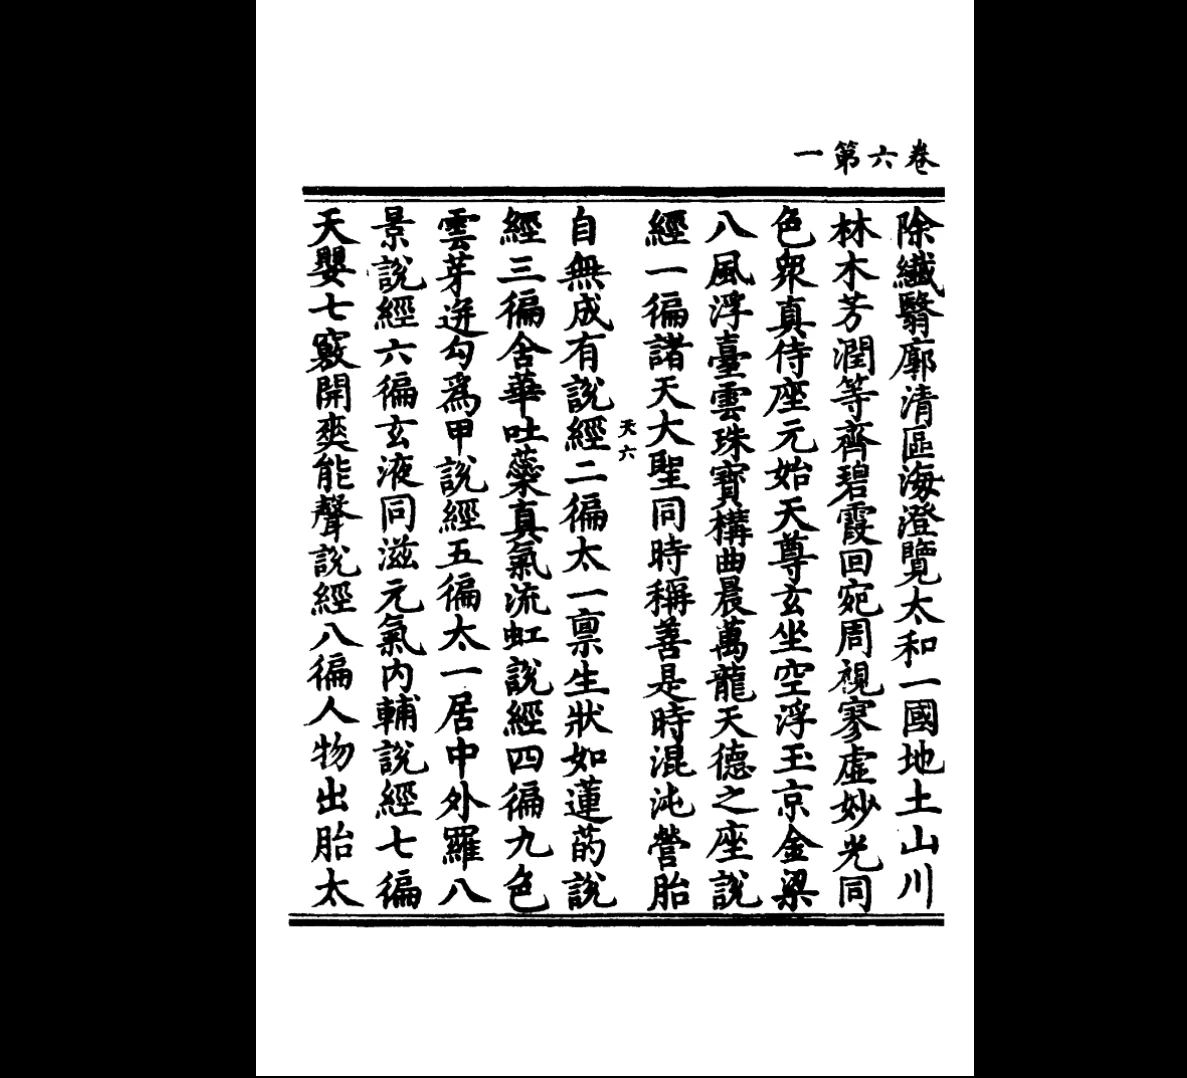 卷六第一
除纎翳廓清區海澄覽太和一國地土山川
林木芳潤等齊碧霞回宛周視寥虛妙光同
色衆真侍座元始天尊玄坐空浮玉京金梁
八風浮臺雲珠寶構曲晨萬龍天德之座說
經一徧諸天大聖同時稱善是時混沌營胎
天六
自無成有說經二徧太一禀生狀如蓮菂說
經三徧含華吐蘂真氣流虹說經四徧九色
雲芽逬勾爲甲說經五徧太一居中外羅八
景說經六徧玄液同滋元氣内輔說經七徧
天嬰七竅開爽能聲說經八徧人物出胎太